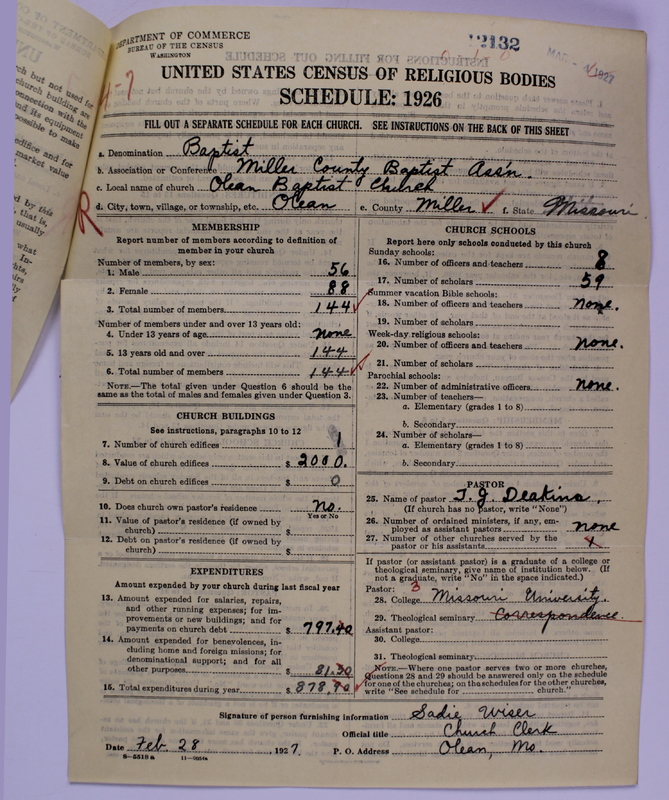 DEPARTMENT OF COMMERCE
BUREAU OF THE CENSUS
WASHINGTON
12132
1927
UNITED STATES CENSUS OF RELIGIOUS BODIES
SCHEDULE: 1926
FILL OUT A SEPARATE SCHEDULE FOR EACH CHURCH. SEE INSTRUCTIONS ON THE BACK OF THIS SHEET
a. Denomination Baptist
b. Association or Conference Miller County Baptist Ass'n.
c. Local name of church Olean Baptist Church
d. City, town, village, or township, etc. Olean e. County Miller f. State Missouri
MEMBERSHIP
Report number of members according to definition of
member in your church
Number of members, by sex:
1. Male 56
2. Female 88
3. Total number of members 144
Number of members under and over 13 years old:
4. Under 13 years of age none
5. 13 years old and over 144
6. Total number of members 144
NOTE.—The total given under Question 6 should be
same as the total of males and females given under Question 3.
CHURCH BUILDINGS
See instructions, paragraphs 10 to 12
7. Number of church edifices 1
8. Value of church edifices $ 2000.
9. Debt on church edifices $ 0
10. Does church own pastor's residence No.
Yes or No
11. Value of pastor's residence (if owned by
church) $
12. Debt on pastor's residence (if owned by
church) $
EXPENDITURES
Amount expended by your church during last fiscal year
13. Amount expended for salaries, repairs,
and other running expenses; for im-
provements or new buildings; and for
payments on church debt $ 797.40
14. Amount expended for benevolences, in-
cluding home and foreign missions; for
denominational support; and for all
other purposes $ 81.30
15. Total expenditures during year $ 878.70
CHURCH SCHOOLS
Report here only schools conducted by this church
Sunday schools:
16. Number of officers and teachers 8
17. Number of scholars 59
Summer vacation Bible schools:
18. Number of officers and teachers none.
19. Number of scholars
Week-day religious schools:
20. Number of officers and teachers none.
21. Number of scholars
Parochial schools:
22. Number of administrative officers none.
23. Number of teachers—
a. Elementary (grades 1 to 8)
b. Secondary
24. Number of scholars—
a. Elementary (grades 1 to 8)
b. Secondary
PASTOR
25. Name of pastor T. J. Deakins,
(If church has no pastor, write "None")
26. Number of ordained ministers, if any, em-
ployed as assistant pastors none
27. Number of other churches served by the
pastor or his assistants
If pastor (or assistant pastor) is a graduate of a college or
theological seminary, give name of institution below. (If
not a graduate, write "No" in the space indicated.)
Pastor: 3
28. College Missouri University.
29. Theological seminary Correspondence.
Assistant pastor:
30. College
31. Theological seminary
NOTE.—Where one pastor serves two or more churches,
Questions 28 and 29 should be answered only on the schedule
for one of the churches; on the schedules for the other churches,
write "See schedule for church."
Signature of person furnishing information Sadie Wiser
Official title Church Clerk
Date Feb 28, 1927. P. O. Address Olean, Mo.
8-5518a 11-9654a